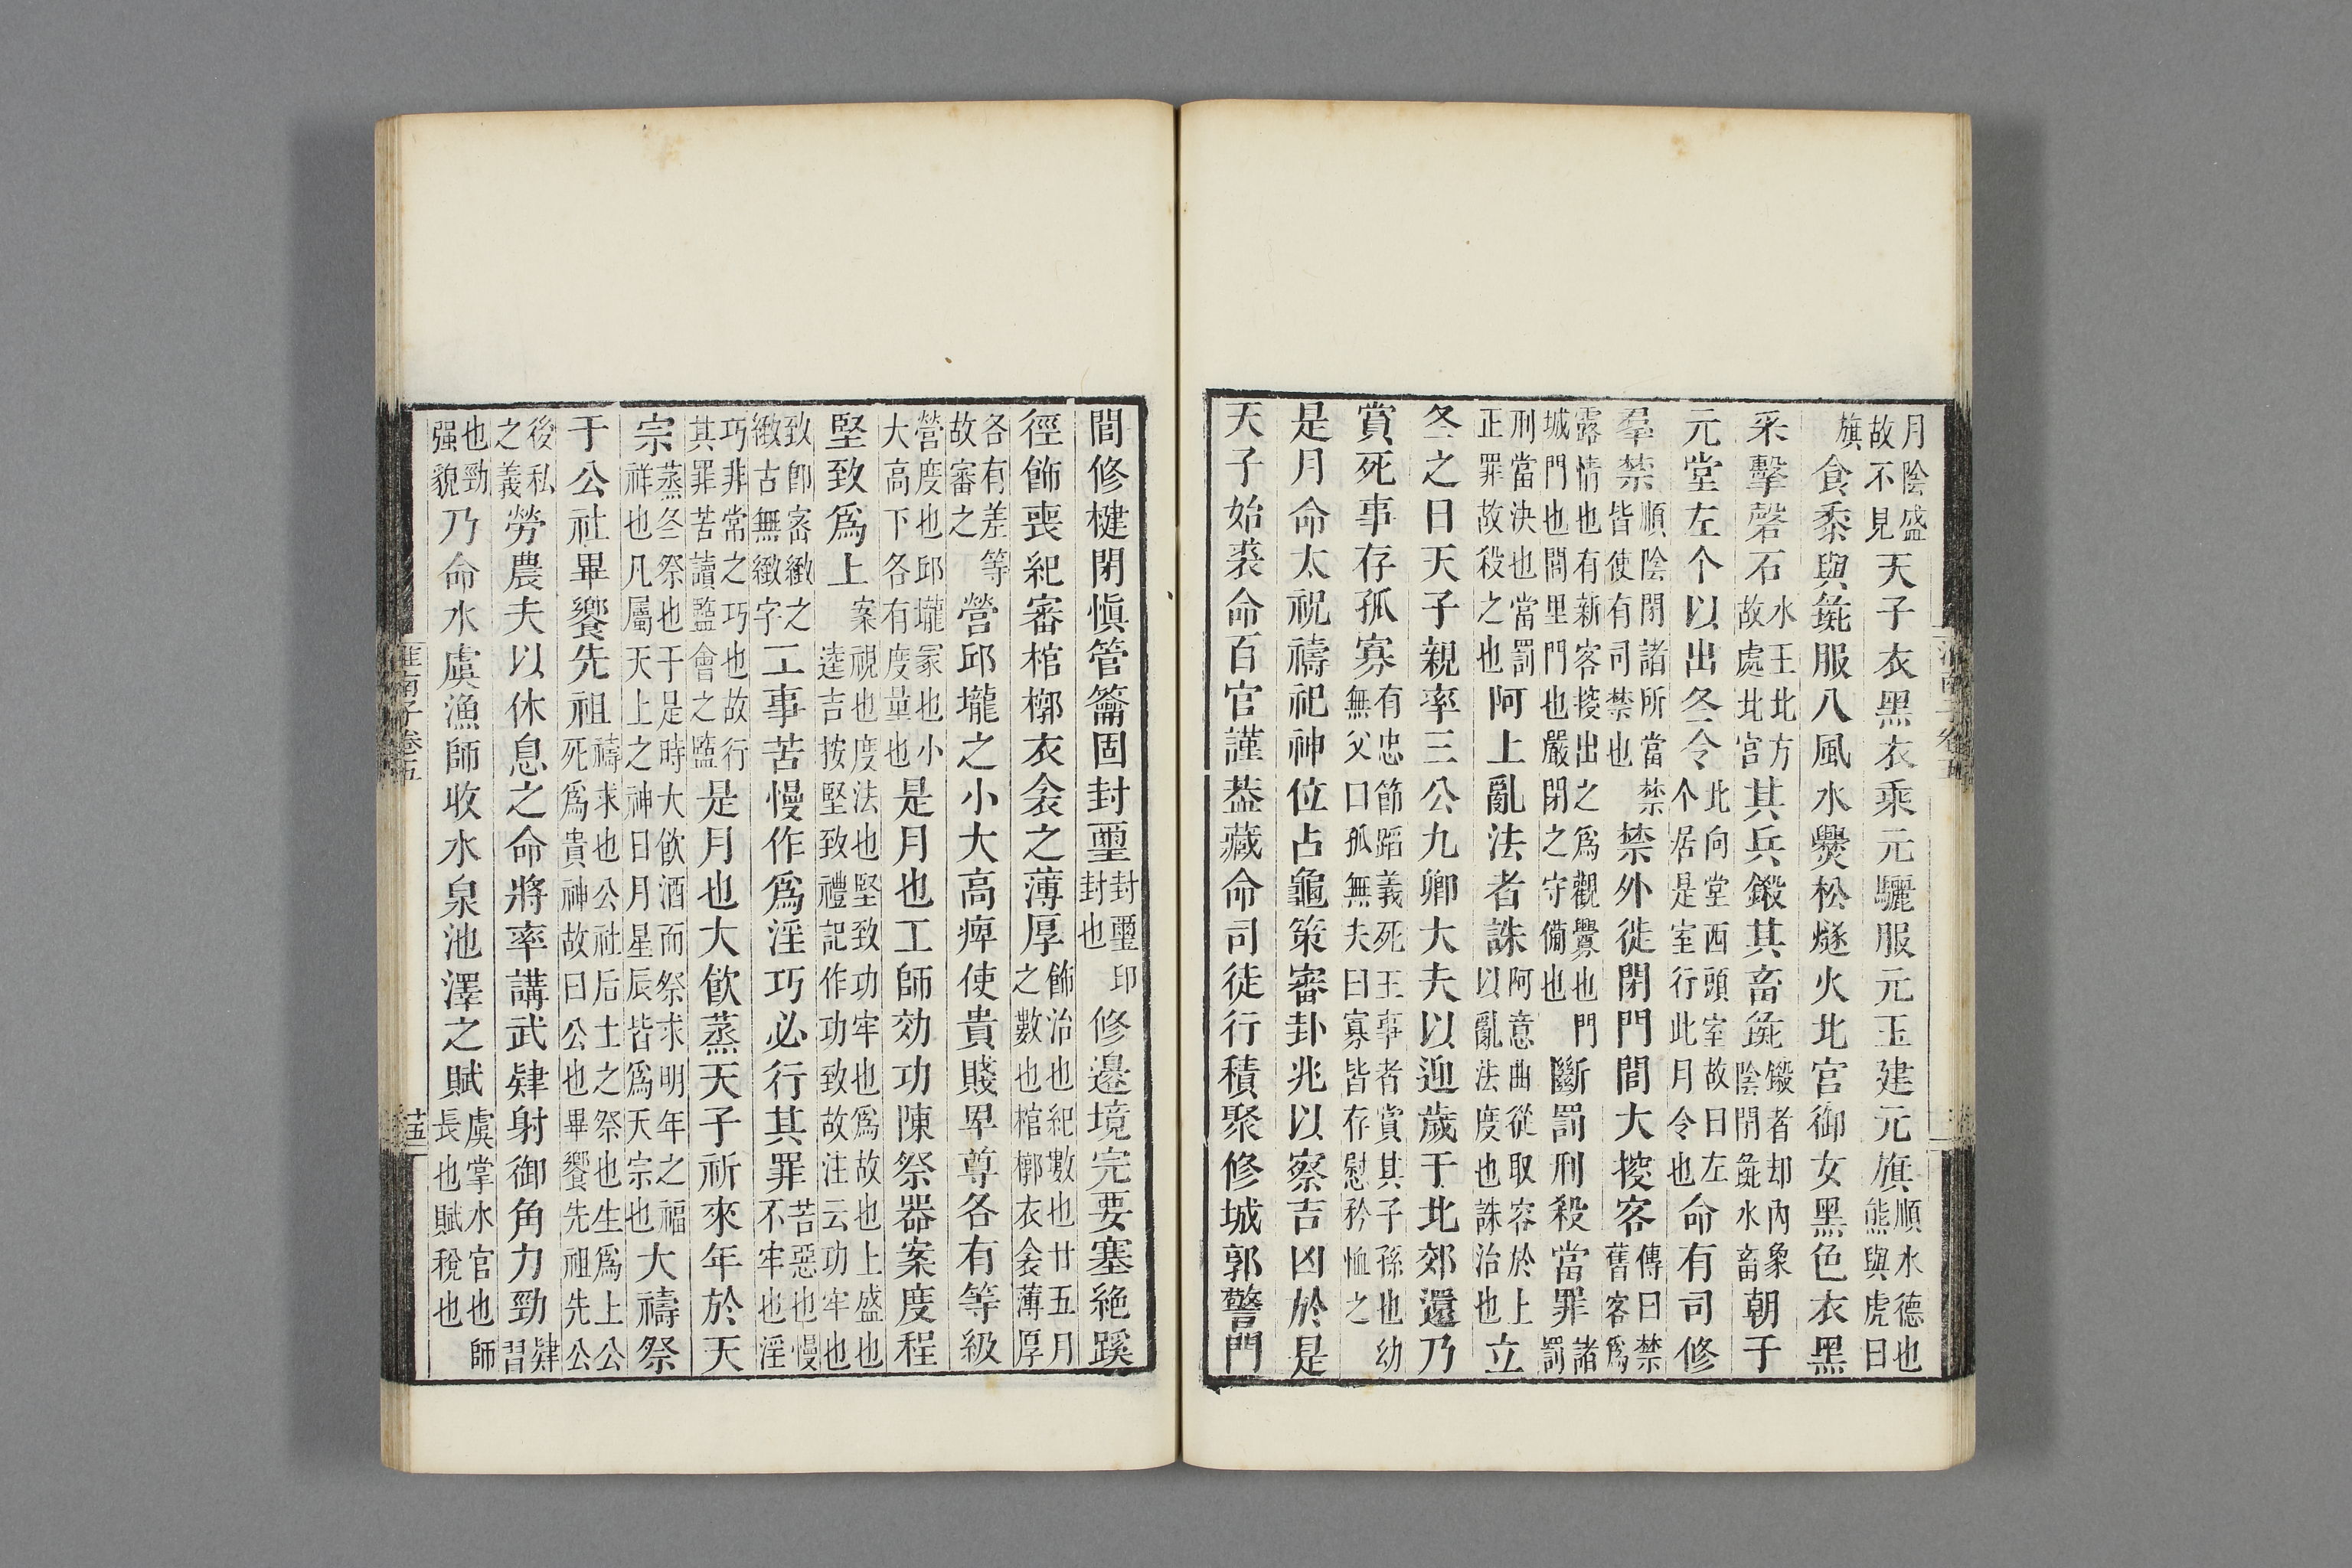 月陰盛故不見天子衣黑衣乘元驪服元玉建元旗順水德也熊與虎曰
旗食黍與彘服八風水爨松燧火北宮御女黑色衣黑
采擊磬石水王北方故處北宮其兵鎩其畜彘鎩者却內象陰閉彘水畜朝于
元堂左个以出冬令北向堂西頭室故曰左个居是室行此月令也命有司修
羣禁順陰閉諸所當禁皆使有司禁也禁外徙閉門閭大搜客傳曰禁舊客爲
露情也有新客搜出之爲觀釁也門城門也閭里門也嚴閉之守備也斷罰刑殺當罪諸罰
刑當決也當罰正罪故殺之也阿上亂法者誅阿意曲從取容於上以亂法度也誅治也立
冬之日天子親率三公九卿大夫以迎歲于北郊還乃
賞死事存孤寡有忠節蹈義死王事者賞其子孫也幼無父曰孤無夫曰寡皆存慰矜恤之
是月命太祝禱祀神位占龜策審卦兆以察吉凶於是
天子始裘命百官謹葢藏命司徒行積聚修城郭警門
閭修楗閉慎管籥固封璽封璽印封也修邊境完要塞絕蹊
徑飾喪紀審棺槨衣衾之薄厚飾治也紀數也廿五月之數也棺槨衣衾薄厚
各有差等故審之營邱壠之小大高痺使貴賤卑尊各有等級
營度也邱壠冢也小大高下各有度量也是月也工師効功陳祭器案度程
堅致爲上案視也度法也堅致功牢也爲故也上盛也逵吉按堅致禮記作功致故注云功牢也
致卽密緻之緻古無緻字工事苦慢作爲淫巧必行其罪苦惡也慢不牢也淫
巧非常之巧也故行其罪苦讀監會之監是月也大飲蒸天子祈來年於天
宗蒸冬祭也于是時大飲酒而祭求明年之福祥也凡屬天上之神日月星辰皆爲天宗也大禱祭
于公社畢饗先祖禱求也公社后土之祭也生爲上公死爲貴神故曰公也畢饗先祖先公
後私之義勞農夫以休息之命將率講武肄射御角力勁肄習
也勁强貌乃命水虞漁師收水泉池澤之賦虞掌水官也師長也賦稅也
淮南子卷五
十五